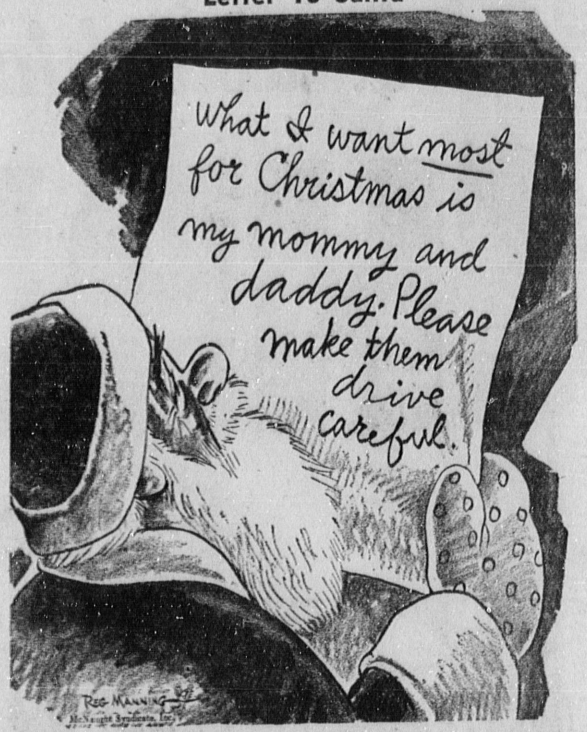 Letter To Santa
What I want most
for Christmas is
my mommy and
daddy. Please
make them
drive
careful.
REG MANNING
McNaught Syndicate, Inc.